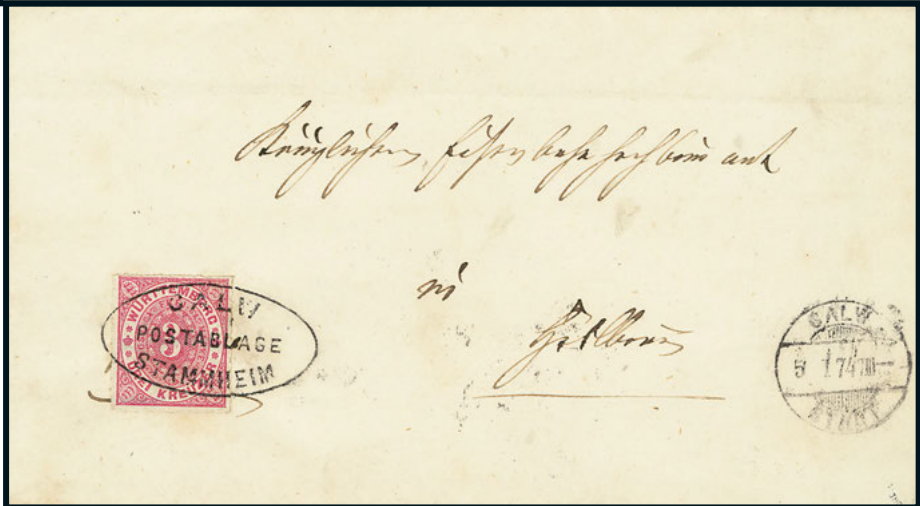 Königlichen Eisenbahnhochbauamt
in
Heilbronn
WÜRTTEMBERG
3
DREI KREUZER
CALW
POSTABLAGE
STAMMHEIM
CALW
5 1 74 III
STADT